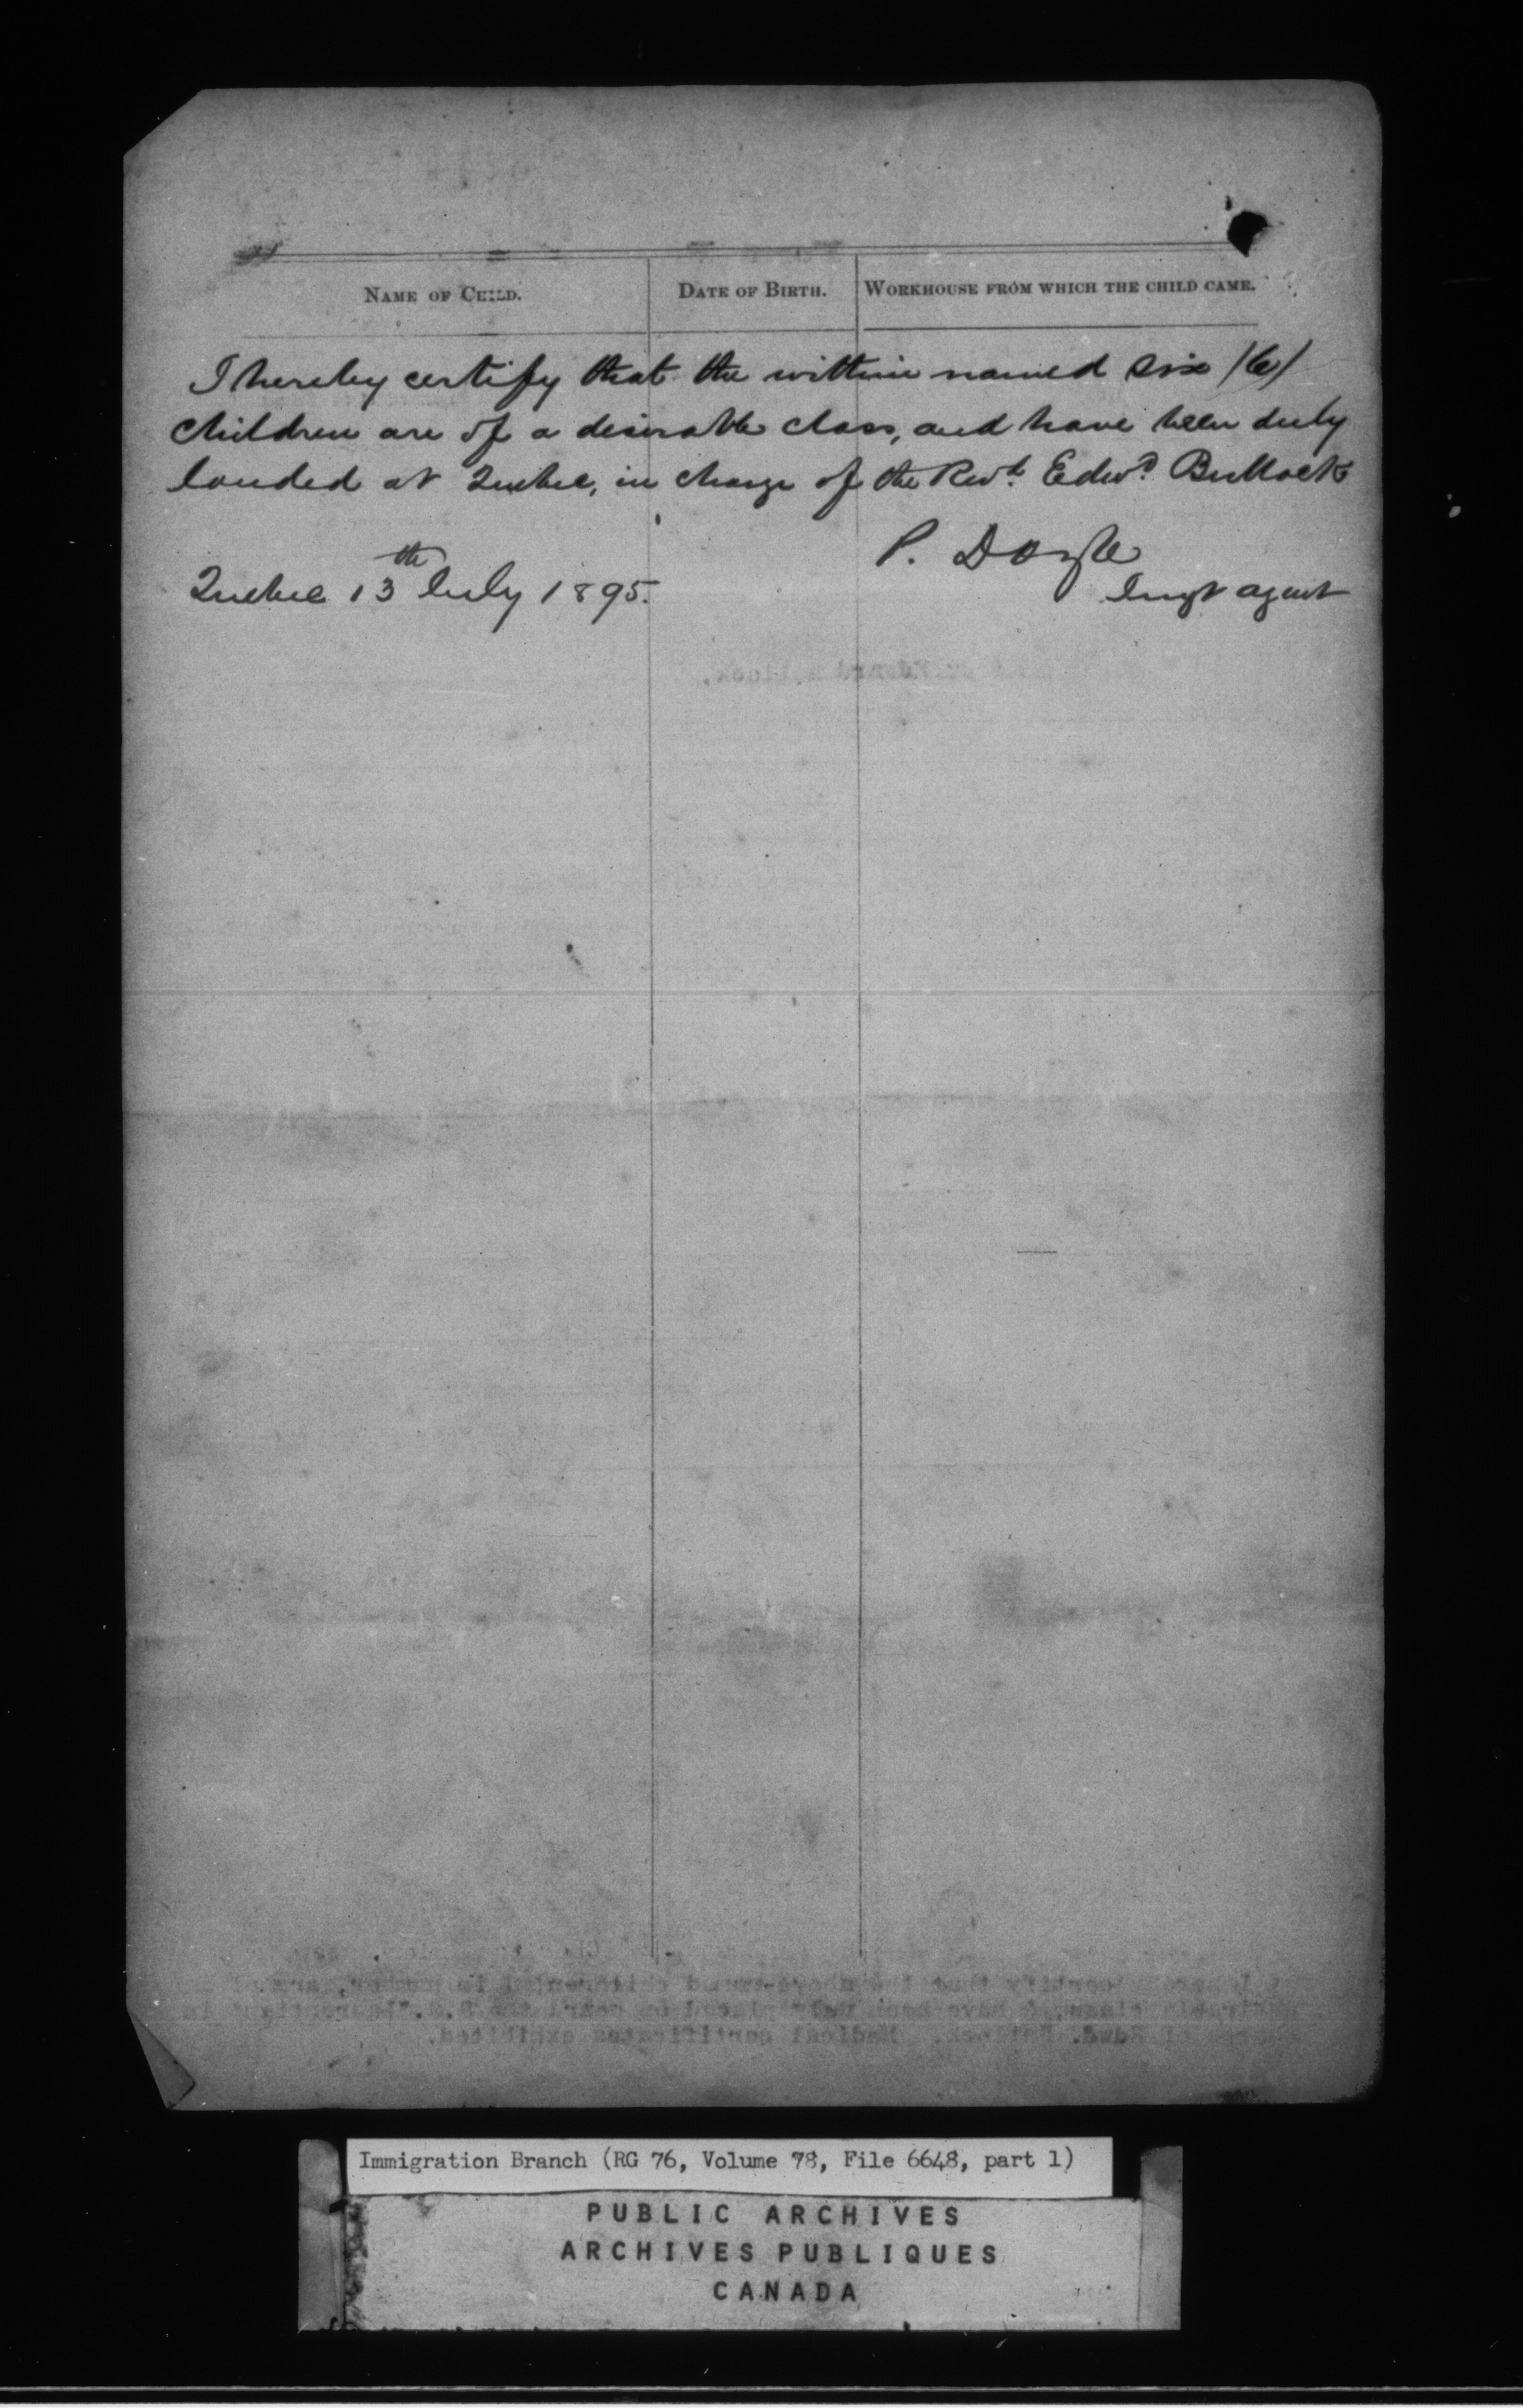 NAME OF CHILD. DATE OF BIRTH. WORKHOUSE FROM WHICH THE CHILD CAME.
I hereby certify that the within named Six /6/
children are of a desirable class, and have been duly
landed at Quebec, in charge of the Revd. Edwd. Bullock
P. Doyle
Quebec 13th July 1895.
Imgt agent
Immigration Branch (RG 76, Volume 78, File 6648, part 1)
PUBLIC ARCHIVES
ARCHIVES PUBLIQUES
CANADA